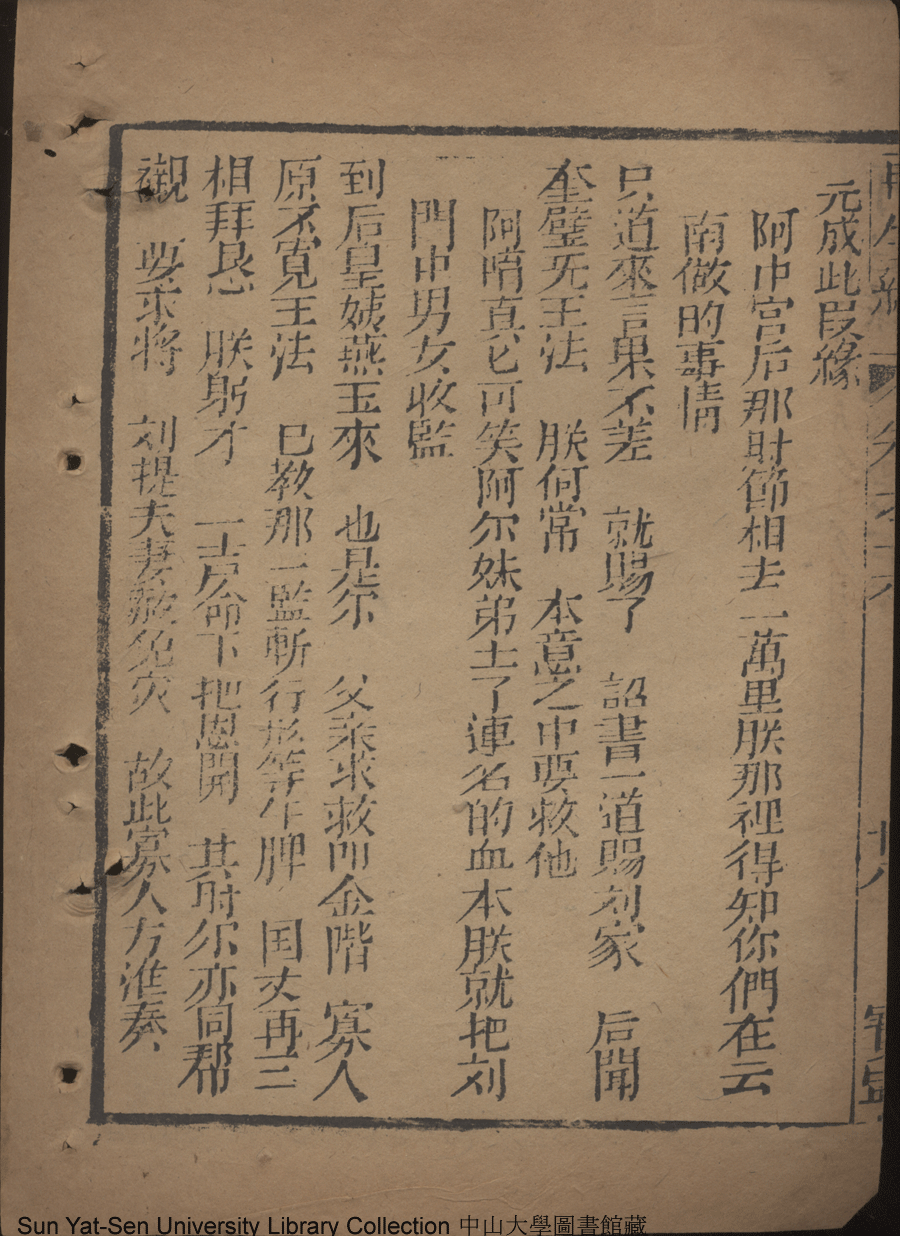 元成此段緣
阿中宮后那时節相去一萬里朕那裡得知你們在云
南做的事情
只道來言果不差 就賜了 詔書一道賜刘家 后聞
奎璧无王法 朕何常 本意之中要救他
阿唷真它可笑阿尔妹弟上了連名的血本朕就把刘
門中男女收監
到后皇姨燕玉來 也是尔 父亲求救叩金階 寡人
原不寬王法 已教那一監斬行形等午牌 国丈再三
相拜恳 朕躬才 一吉命下把恩開 其时尔亦同帮
襯 要求將 刘提夫妻赦免灾 故此寡人方准奏
Sun Yat-Sen University Library Collection 中山大學圖書館藏